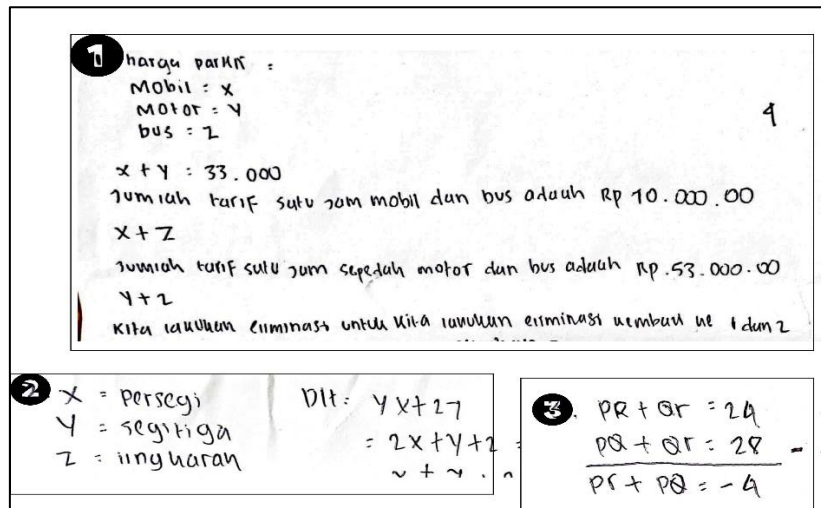 1 harga parkir :
Mobil = x
Motor = y
bus = z
4
x + y : 33.000
Jumlah tarif satu jam mobil dan bus adalah Rp 70.000.00
x + z
Jumlah tarif satu jam sepedah motor dan bus adalah Rp.53.000.00
y + z
kita lakukan eliminasi untuk kita lakukan eliminasi kembali ke 1 dan 2
2 x = persegi
y = segitiga
z = lingkaran
Dit: yx+27
= 2x+y+2 =
3. PR + Qr = 24
PQ + Qr = 28 -
Pr + PQ = -4